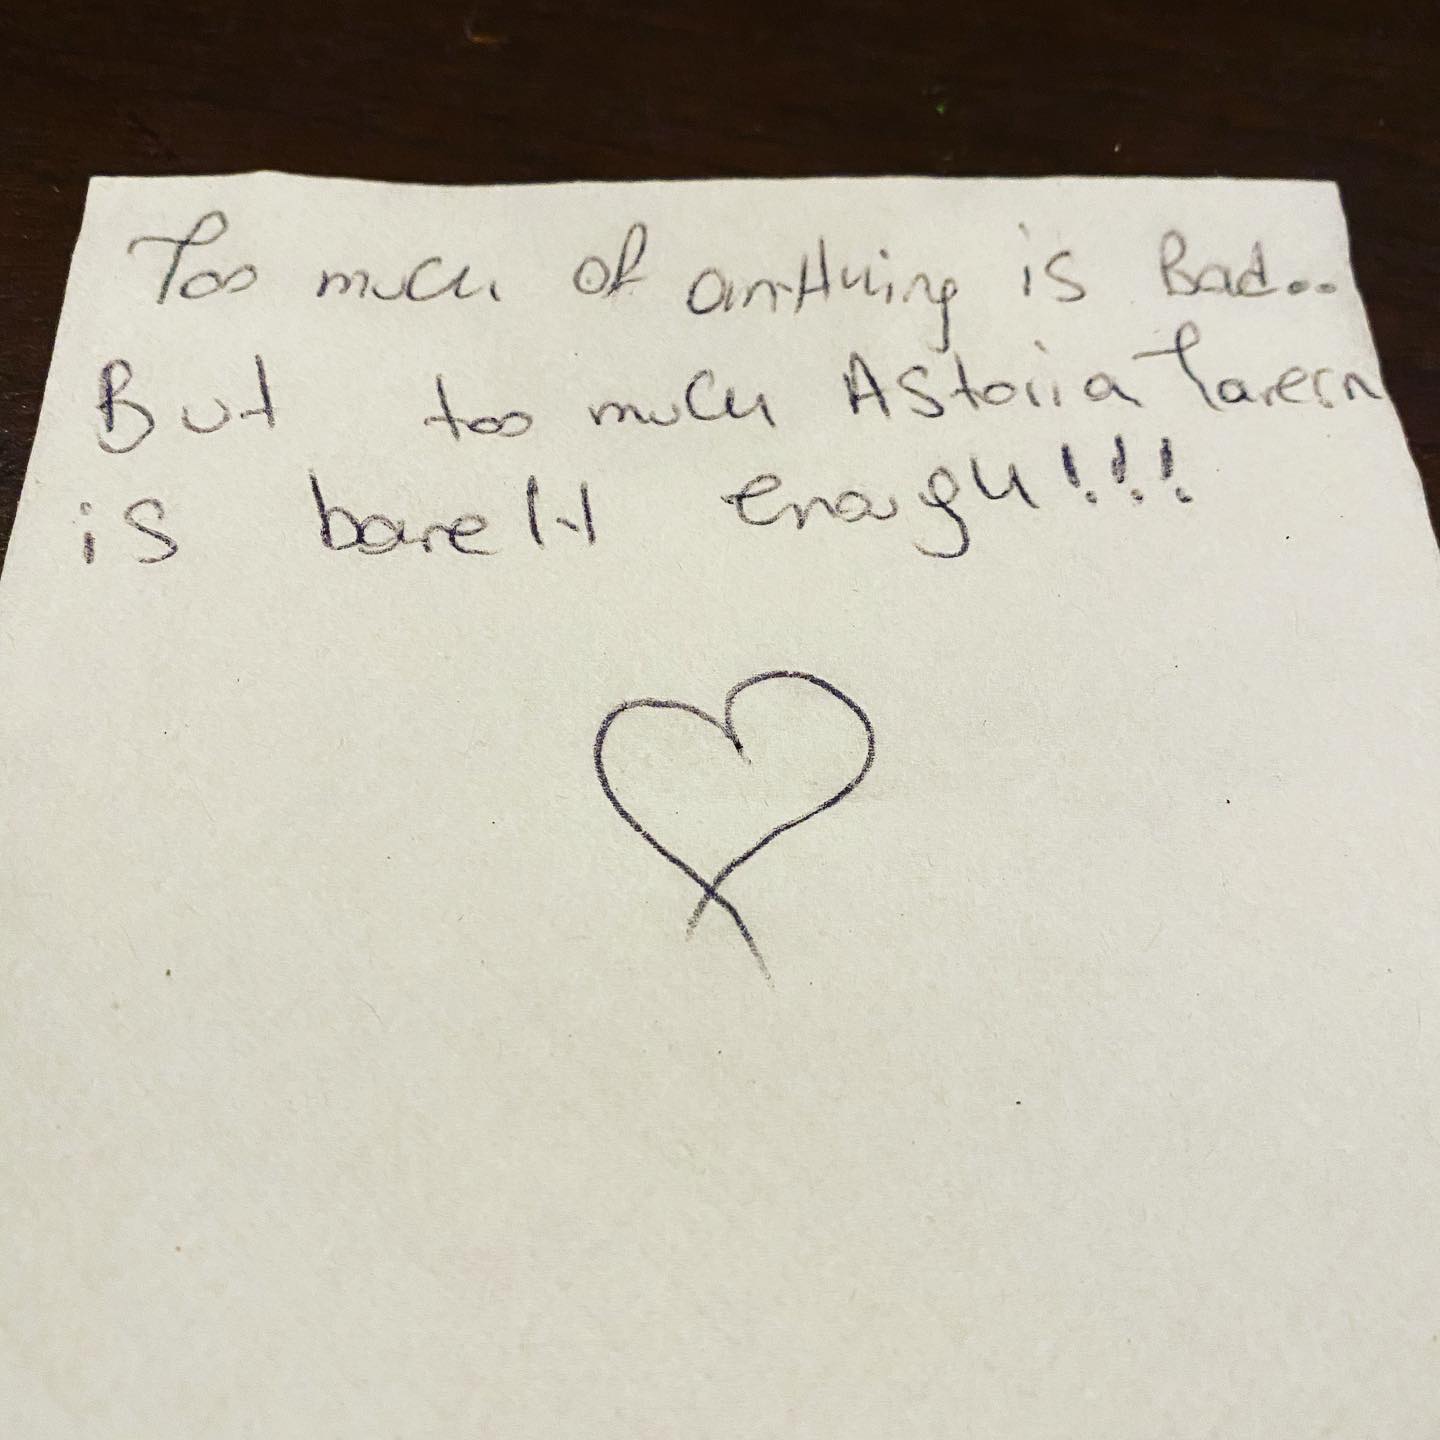 Too much of anything is Bad..
But too much Astoria Tavern
is barely enough!!!